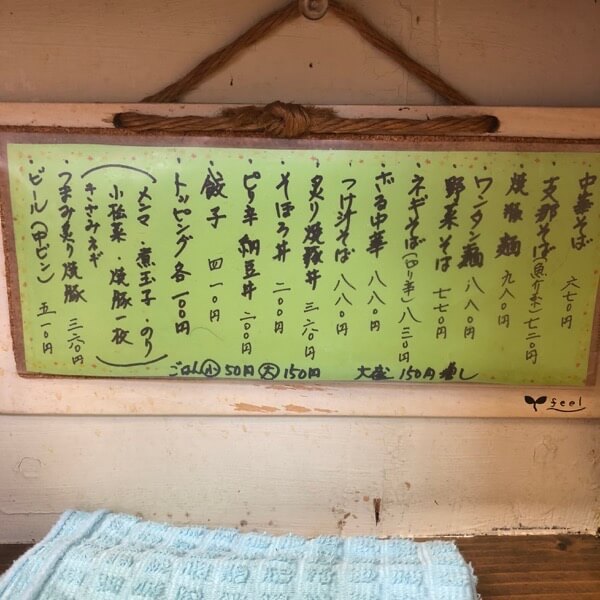 ・中華そば 六七〇円
・支那そば(魚介系)七二〇円
・焼豚麺 九八〇円
・ワンタン麺 八八〇円
・野菜そば 七七〇円
・ネギそば(ピリ辛)八三〇円
・ざる中華 八八〇円
・つけ汁そば 八八〇円
・炙り焼豚丼 三六〇円
・そぼろ丼 二〇〇円
・ピリ辛納豆丼 二〇〇円
・餃子 四一〇円
・トッピング各一〇〇円
(メンマ・煮玉子・のり
小松菜・焼豚一枚
きざみネギ)
・つまみ炙り焼豚 三六〇円
・ビール(中ビン) 五一〇円
ごはん小50円 大150円 大盛150円増し
feel